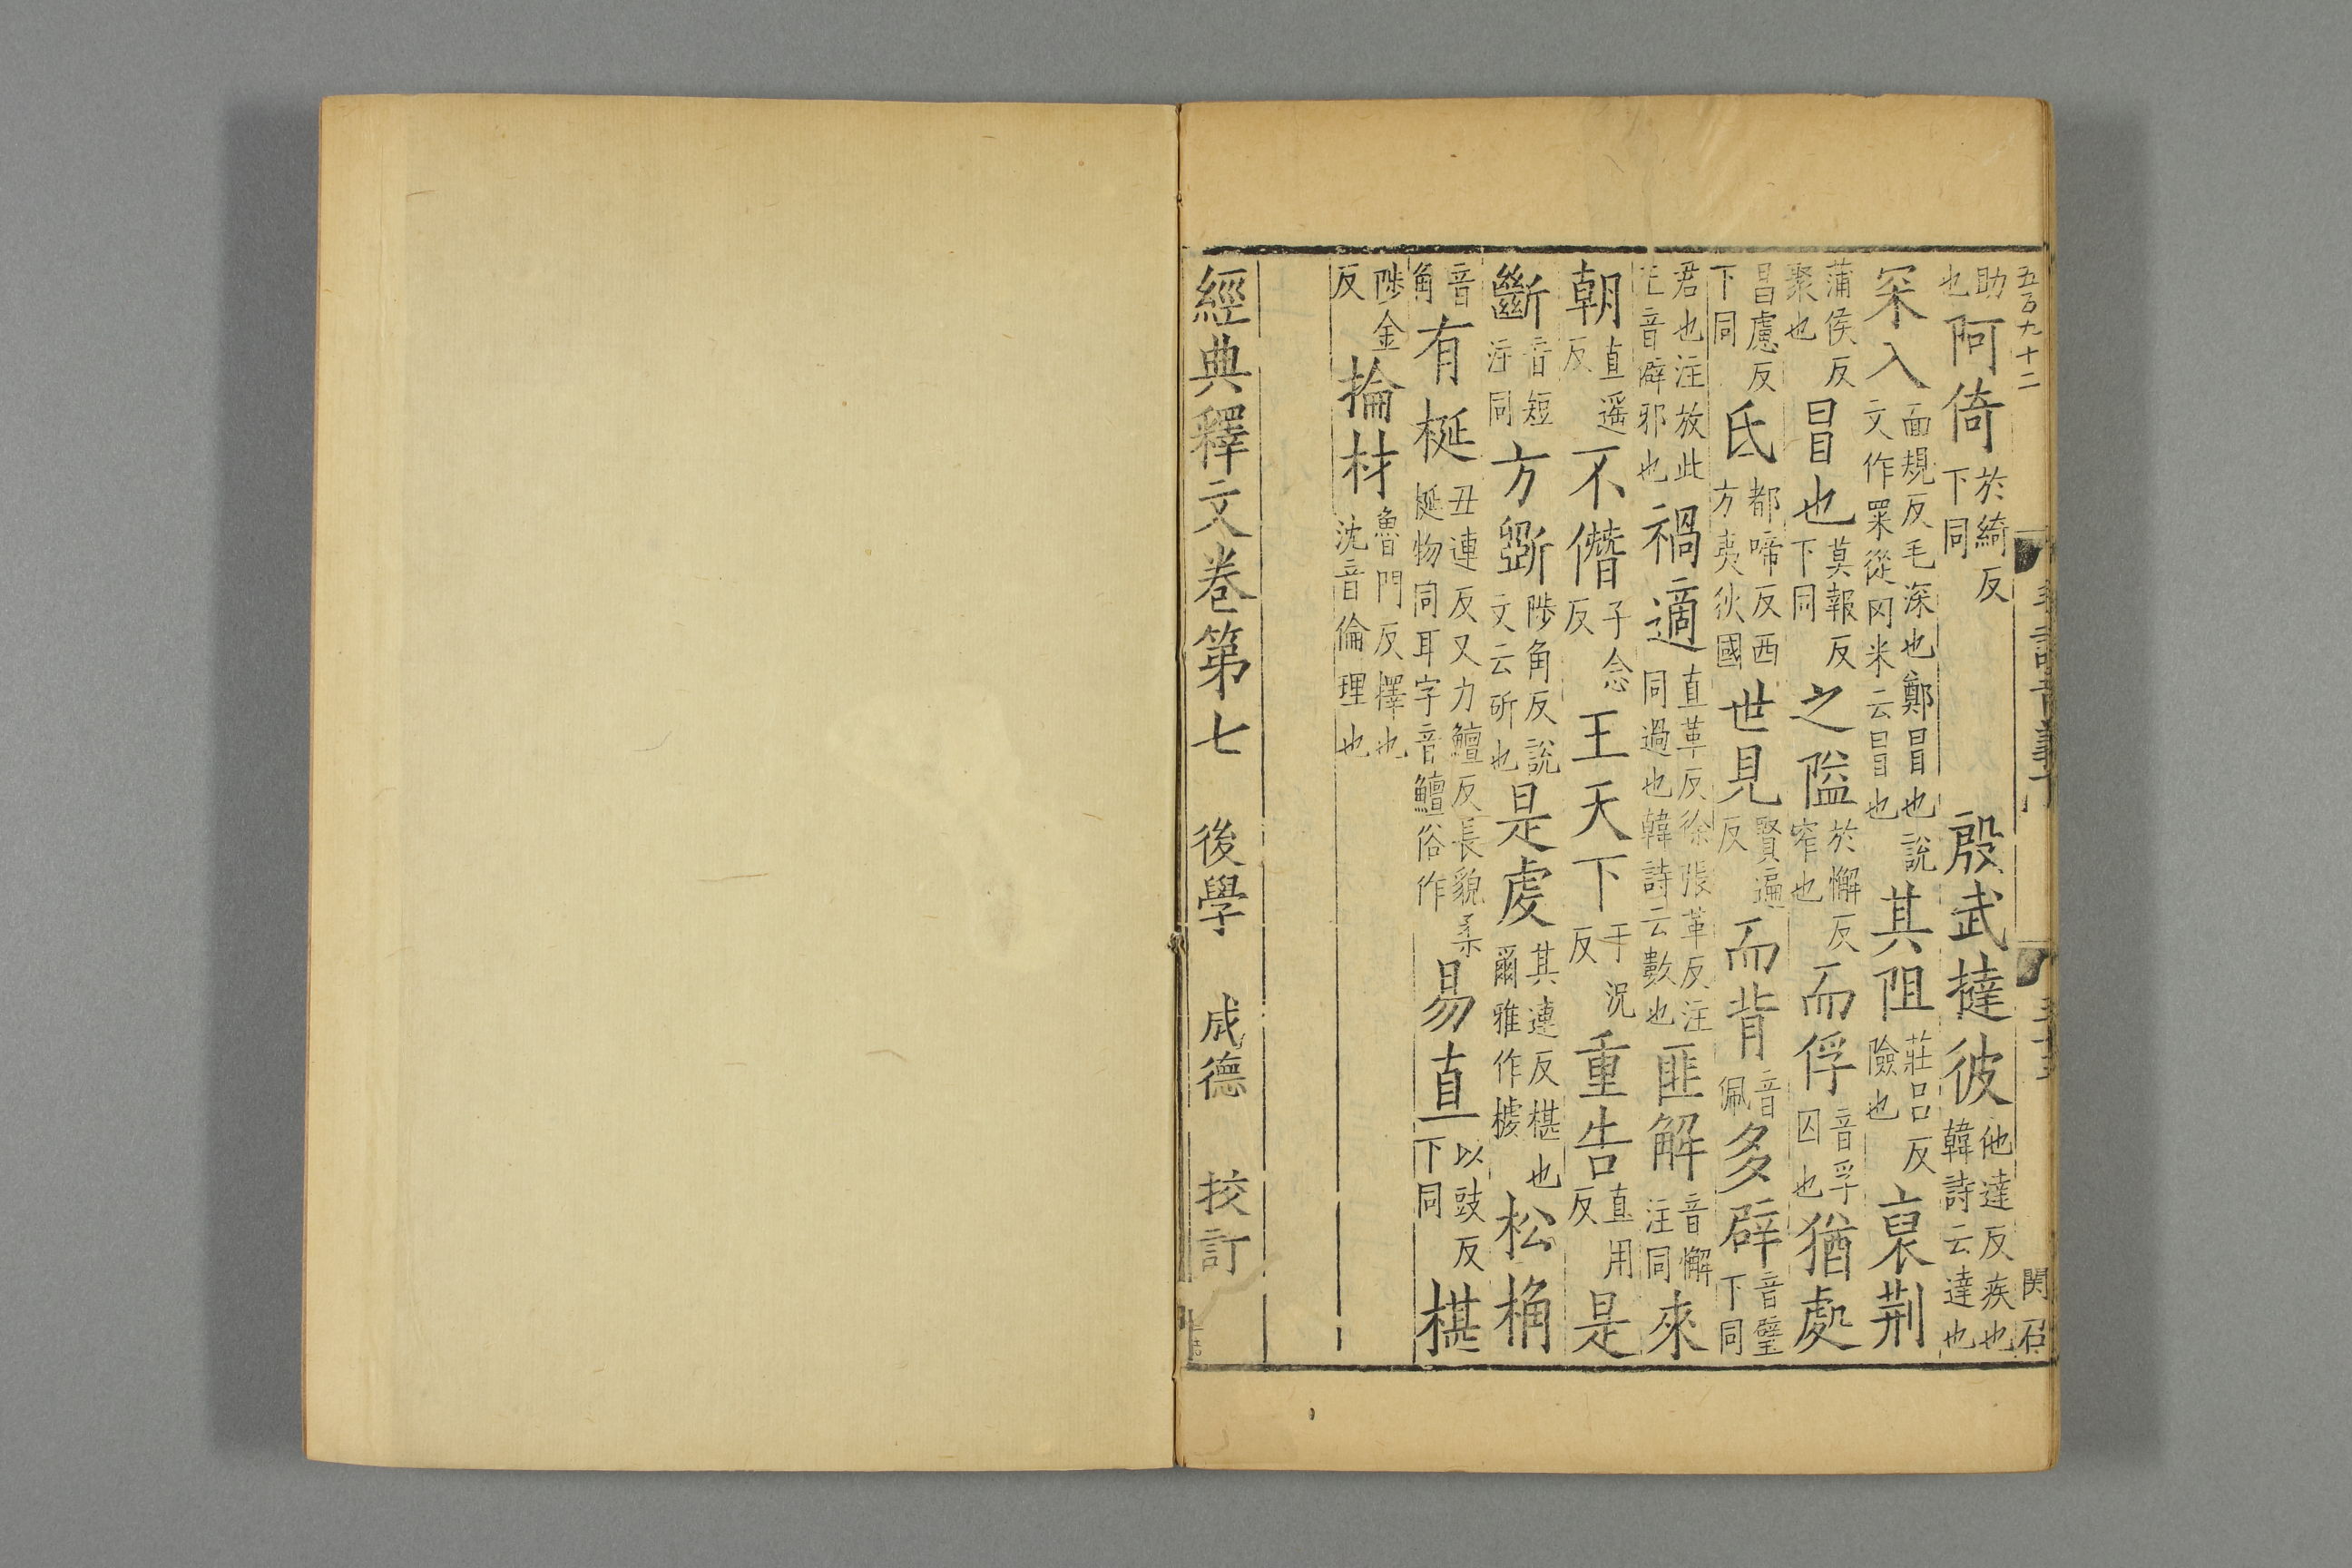 五百九十二 毛詩音義下
助也阿倚於綺反下同 殷武撻彼他達反疾也韓詩云達也
罙入面規反毛深也鄭冒也說文作罙從冈米云冒也其阻莊呂反險也裒荆
蒲侯反聚也冒也莫報反下同之隘於懈反窄也而俘音孚囚也猶處
昌慮反下同氐都啼反西方夷狄國世見賢遍反而背音佩多辟音璧下同
君也注放此王音辟邪也禍適直革反徐張革反注同過也韓詩云數也匪解音懈注同來
朝直遥反不僭子念反王天下于況反重告直用反是
斷音短注同方斲陟角反說文云斫也是虔其連反椹也爾雅作榩松桷
音角有梴丑連反又力鱣反長貌柔梴物同耳字音鱣俗作易直以豉反下同椹
陟金反掄材魯門反擇也沈音倫理也
經典釋文卷第七 後學 成德 挍訂